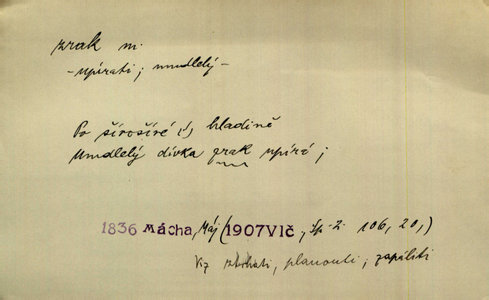 zrak m.
- upírati; umdlelý -
Po šírošíré (!) hladině
Umdlelý dívka zrak upírá;
1836 Mácha, Máj (1907Vlč, Sp. 2. 106, 20,)
Viz, planouti, zapáliti